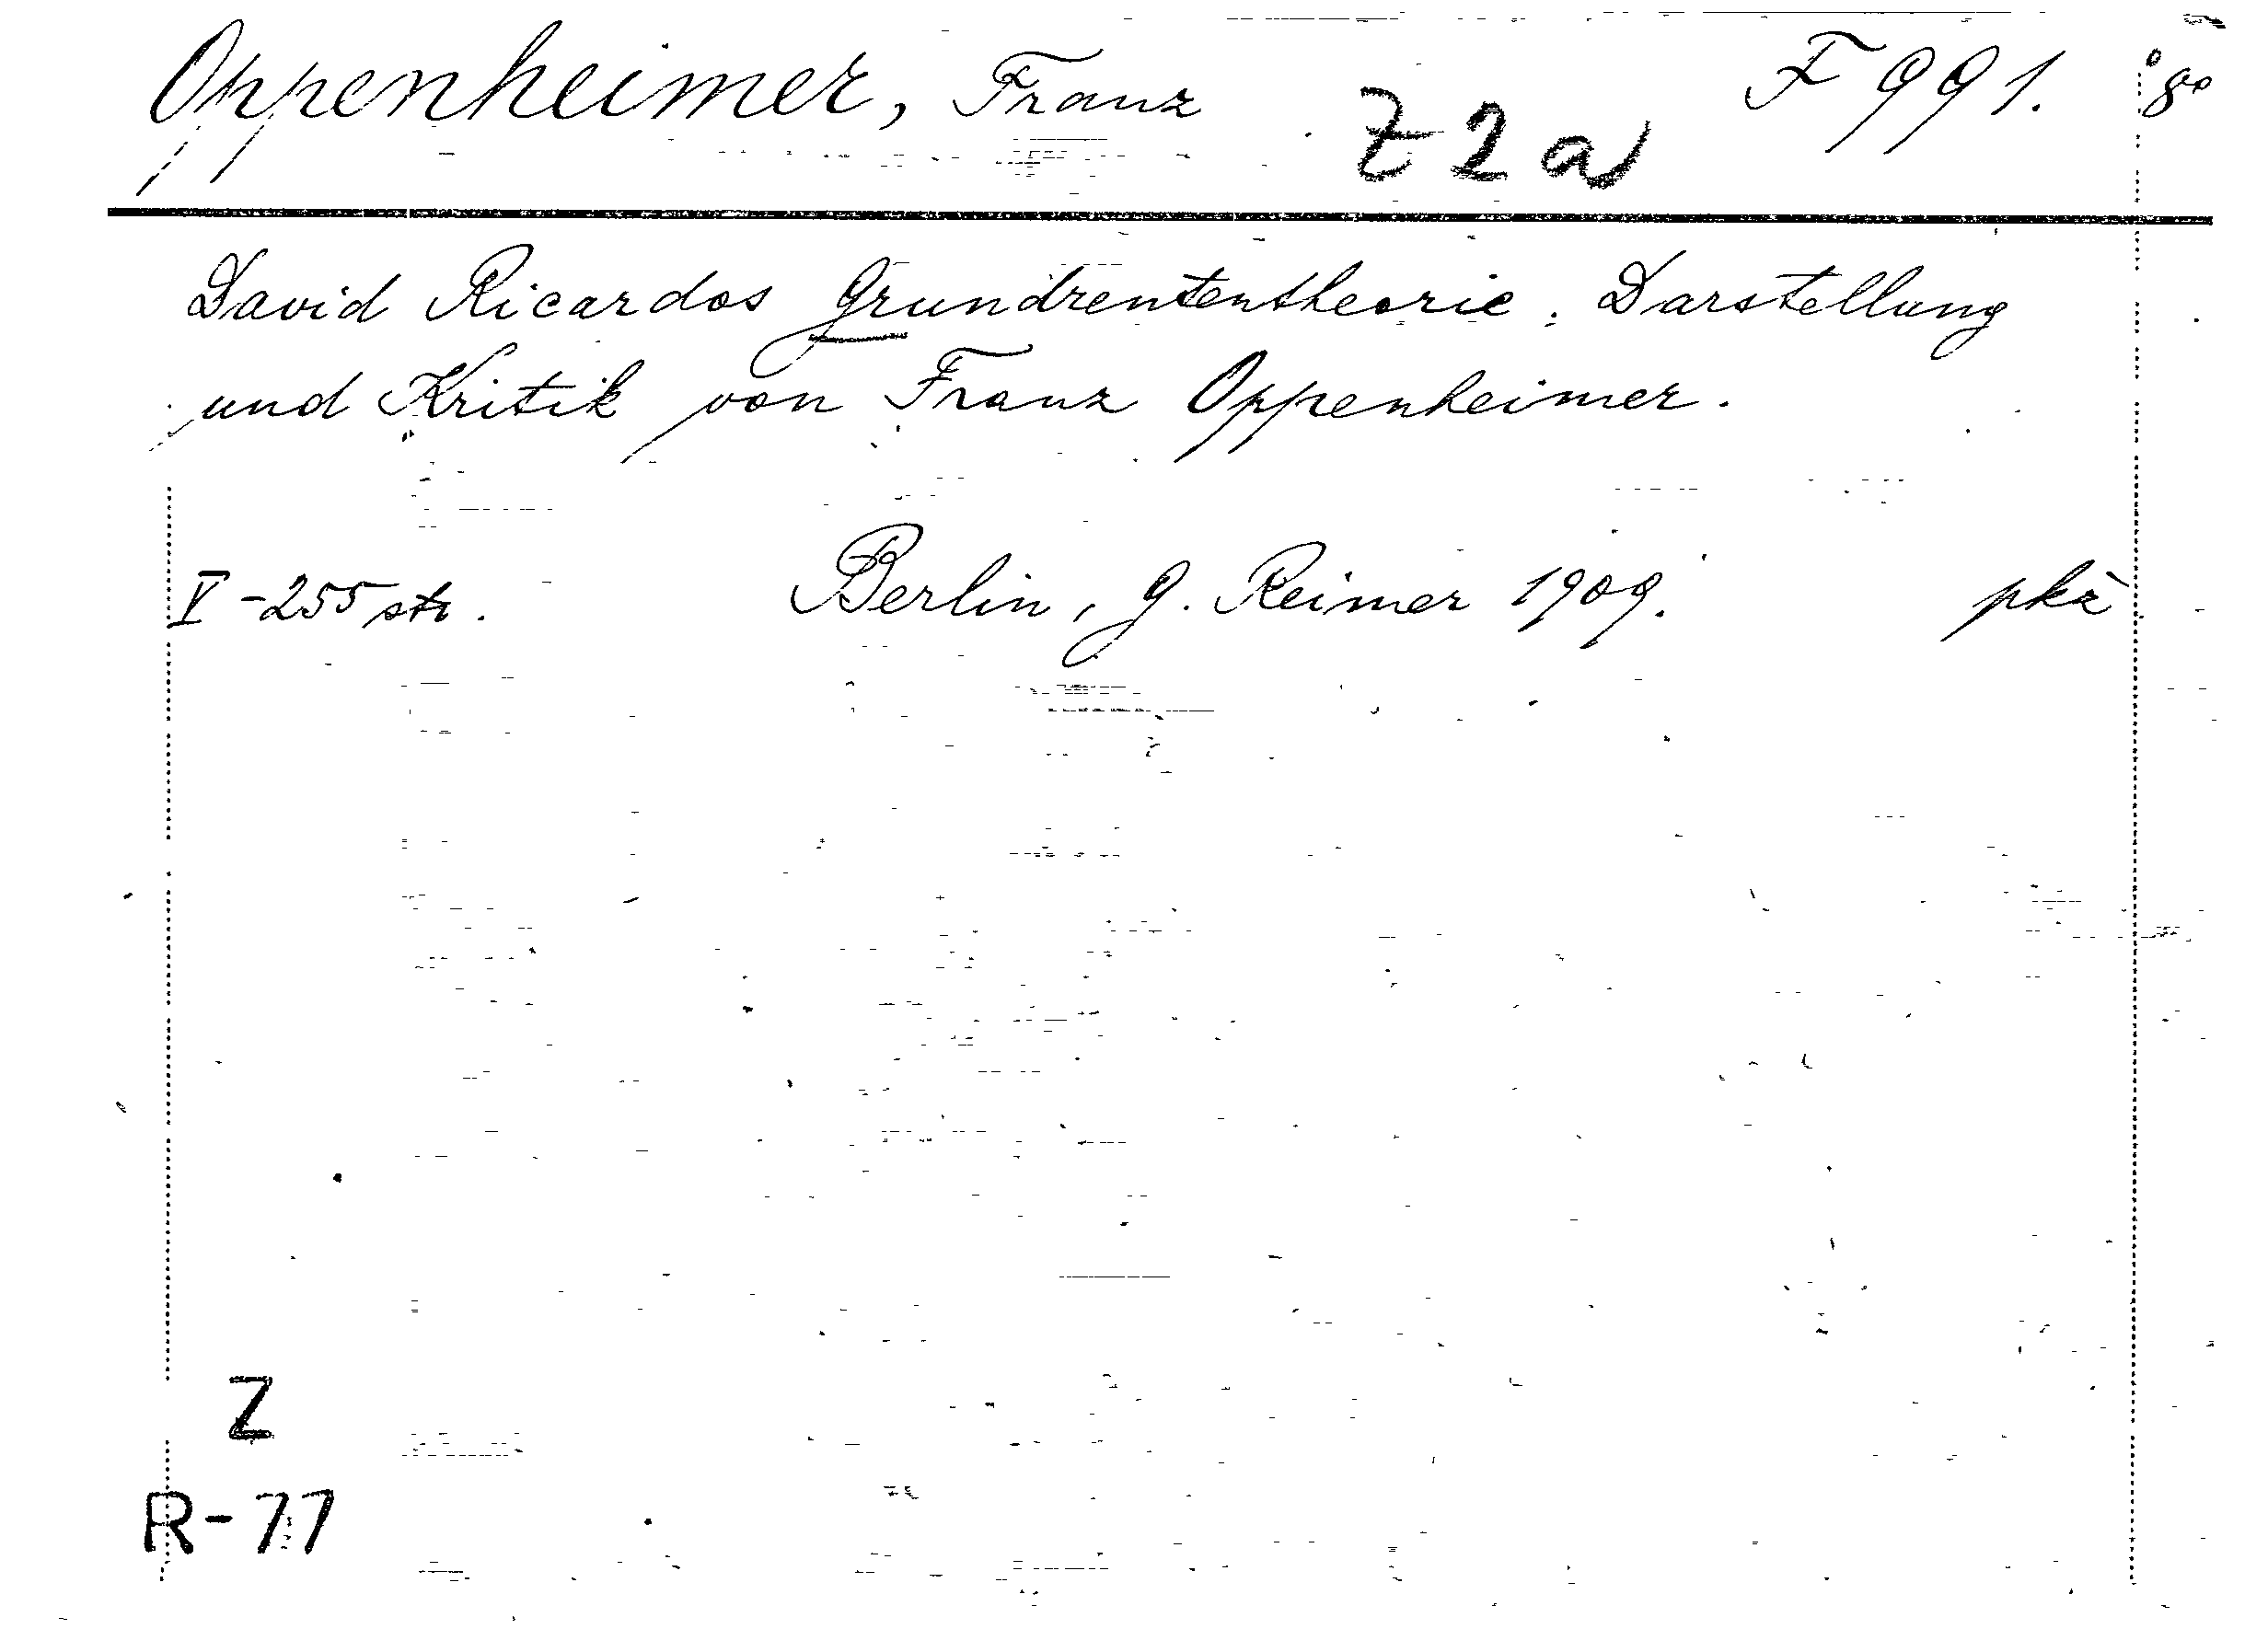 Oppenheimer, Franz Z2a F 991. 8°
David Ricardos Grundrententheorie. Darstellung
und Kritik von Franz Oppenheimer.
V - 255 str. Berlin, G. Reimer 1909. pkž
Z
R-77